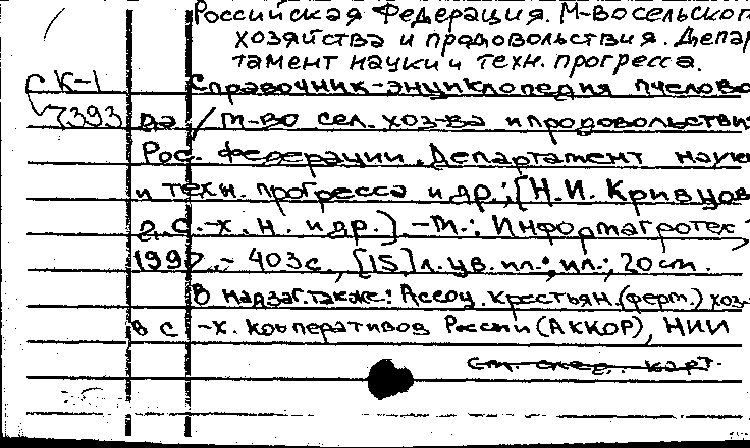 Российская Федерация. М-во сельского
хозяйства и продовольствия. Депар
тамент науки и техн. прогресса.
СК-1 Справочник-энциклопедия пчелово
7393 да / М-во сел. хоз-ва и продовольствия
Рос. Федерации. Департамент науки
и техн. прогресса и др.; [Н.И. Кривцов
д.с.-х.н. и др.] - М.: Информагротех,
1997. - 403с., [15]л. цв. ил.: ил.; 20см.
В надзаг. также: Ассоц. крестьян. (ферм.) хоз-
в с -х. кооперативов России (АККОР), НИИ
См. след. карт.